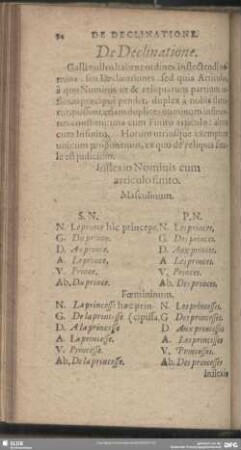 94 DE DECLINATIONE.
De Declinatione.
Galli nullos habent ordines inflectendi no-
mina: seu Declinationes: sed quia Articulo,
à quo Nominis et & reliquarum partium
præcipuè pendet, duplex à nobis
cum Finito articulo: alter
cum Infinito. Horum utriusque exemplum
unicum proponemus, ex quo de reliquis
est judicium.
Inflexio Nominis cum
articulo finito.
Masculinum.
S. N. P. N.
N. Le prince hic princeps. N. Les princes.
G. Du prince. G. Des princes.
D. Au prince. D. Aux princes.
A. Le prince. A. Les princes.
V. Prince. V. Princes.
Ab. Du prince. Ab. Des princes.
Fœmininum.
N. La princesse hæc prin- N. Les princesses.
G. De la princesse (cipissa. G. Des princesses.
D. A la princesse D. Aux princesses
A. La princesse. A. Les princesses.
V. Princesse. V. Princesses.
Ab. De la princesse. Ab. Des princesses
Inflexio